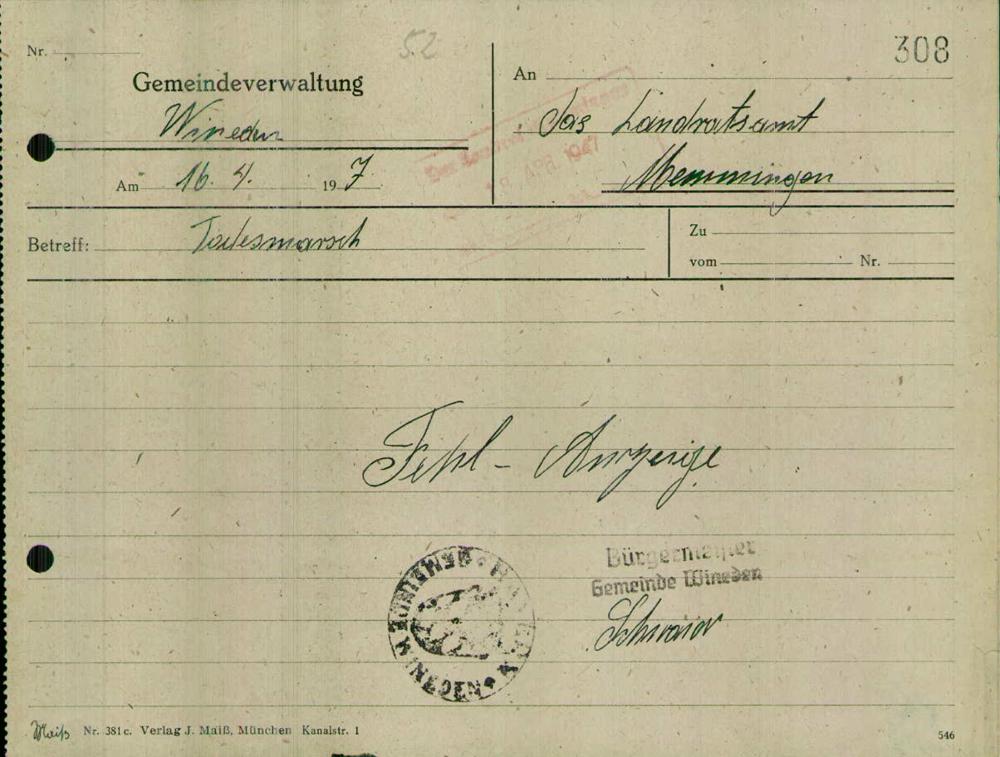 Nr.
52
308
Gemeindeverwaltung
Wineden
Am 16. 4. 1947
An
Das Landratsamt
Memmingen
18. APR. 1947
Betreff: Todesmarsch
Zu
vom Nr.
Fehl - Anzeige
BAYERN
GEMEINDE WINEDEN
Bürgermeister
Gemeinde Wineden
Schwaier
Maiß Nr. 381c. Verlag J. Maiß, München Kanalstr. 1
546